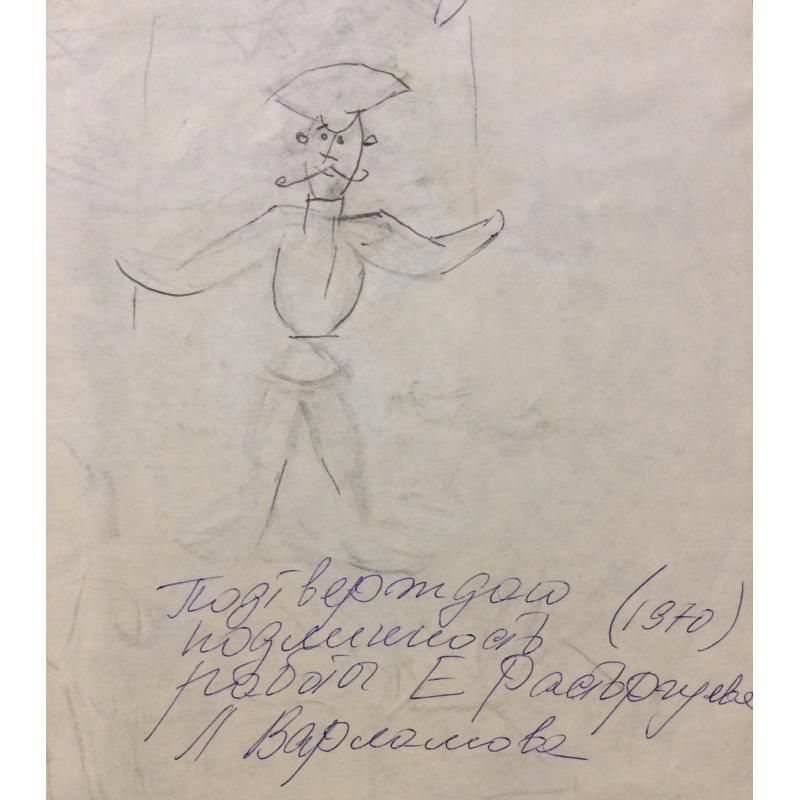 Подтверждаю
подлинность (1970)
работы Е Расторгуева
Л Варламова